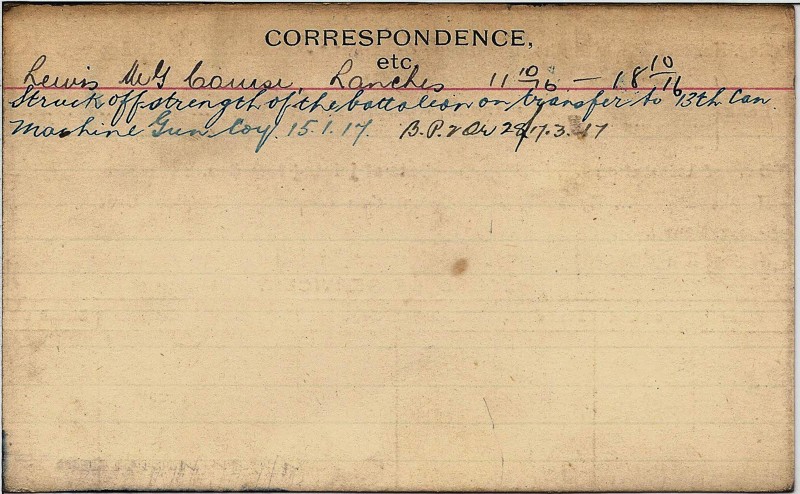 CORRESPONDENCE,
etc.
Lewis M G Course, Lonches 11 10/16 — 18 10/16
Struck off strength of the battalion on transfer to 13th Can.
Machine Gun Coy. 15.1.17. B.P.2 Or 28/17.3.17